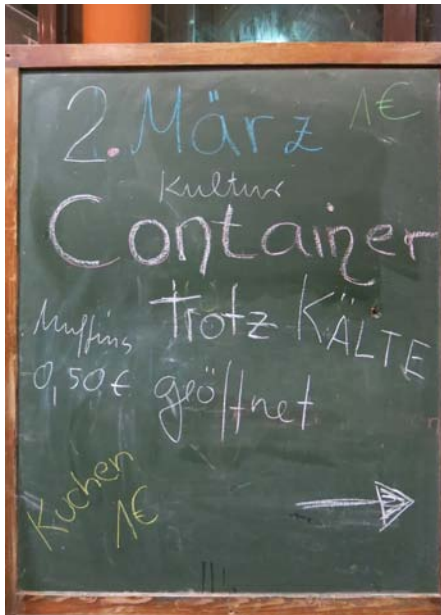 2. März 1€
Kultur
Container
trotz KÄLTE
Muffins
0,50€ geöffnet
Kuchen
1€